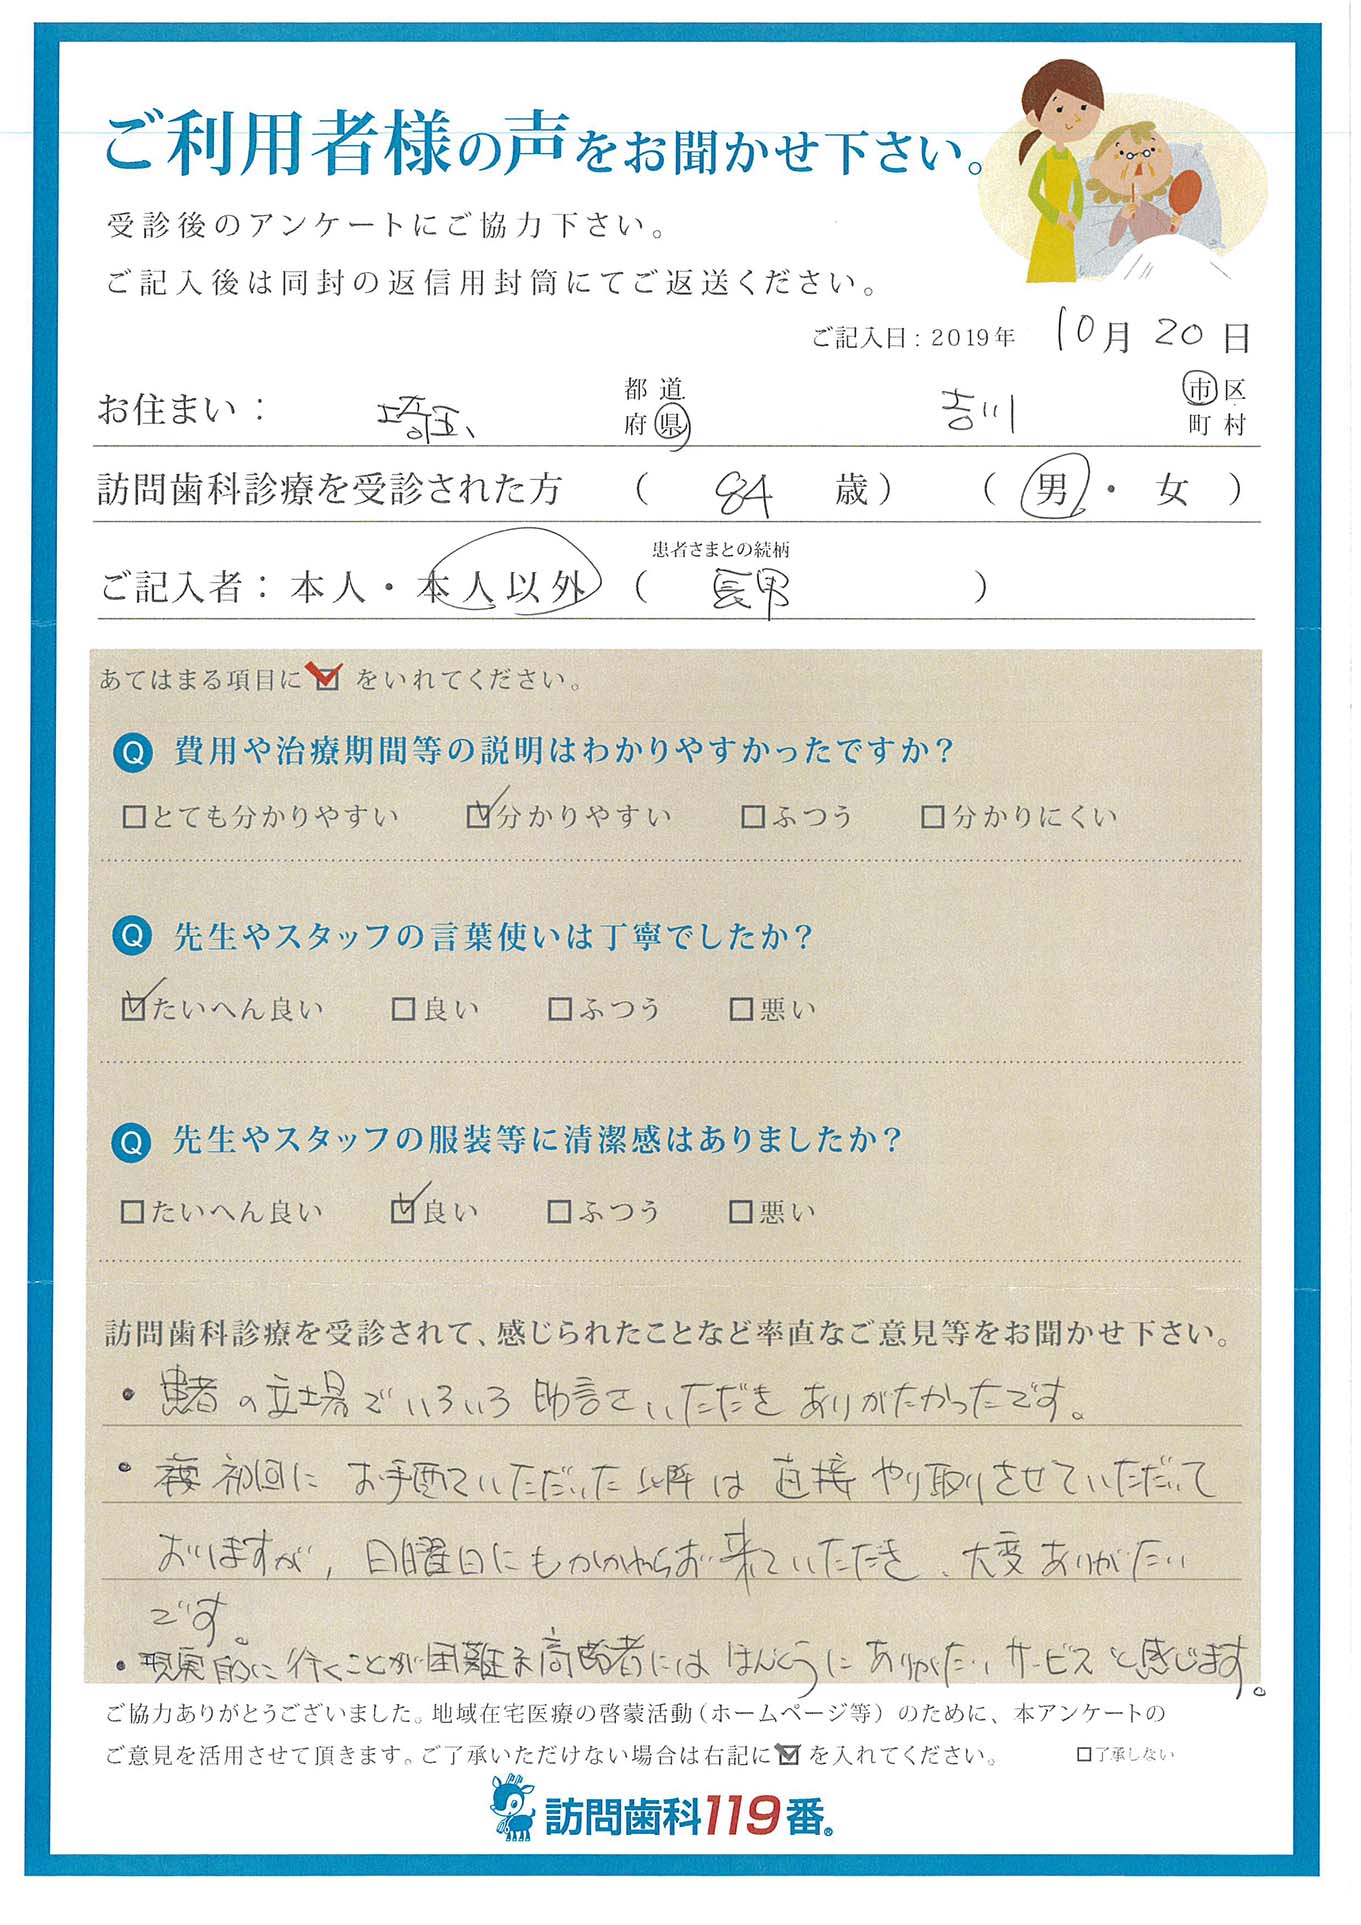 ご利用者様の声をお聞かせ下さい。
受診後のアンケートにご協力下さい。
ご記入後は同封の返信用封筒にてご返送ください。
ご記入日：2019年 10月 20日
お住まい： 埼玉 都道府県 吉川 市区町村
訪問歯科診療を受診された方 （ 84 歳） （ 男・女 ）
患者さまとの続柄
ご記入者：本人・本人以外（ 長男 ）
あてはまる項目に☑をいれてください。
Q 費用や治療期間等の説明はわかりやすかったですか？
☐とても分かりやすい ☑分かりやすい ☐ふつう ☐分かりにくい
Q 先生やスタッフの言葉使いは丁寧でしたか？
☑たいへん良い ☐良い ☐ふつう ☐悪い
Q 先生やスタッフの服装等に清潔感はありましたか？
☐たいへん良い ☑良い ☐ふつう ☐悪い
訪問歯科診療を受診されて、感じられたことなど率直なご意見等をお聞かせ下さい。
・患者の立場でいろいろ助言さいただきありがたかったです。
・初回にお手配ていただいた以降は直接やり取りさせていただいて
おりますが，日曜日にもかかわらお来ていただき、大変ありがたい
です。
・現実的に行くことが困難な高齢者にはほんとうにありがたいサービスと感じます。
ご協力ありがとうございました。地域在宅医療の啓蒙活動（ホームページ等）のために、本アンケートの
ご意見を活用させて頂きます。ご了承いただけない場合は右記に☑を入れてください。 ☐了承しない
訪問歯科119番®